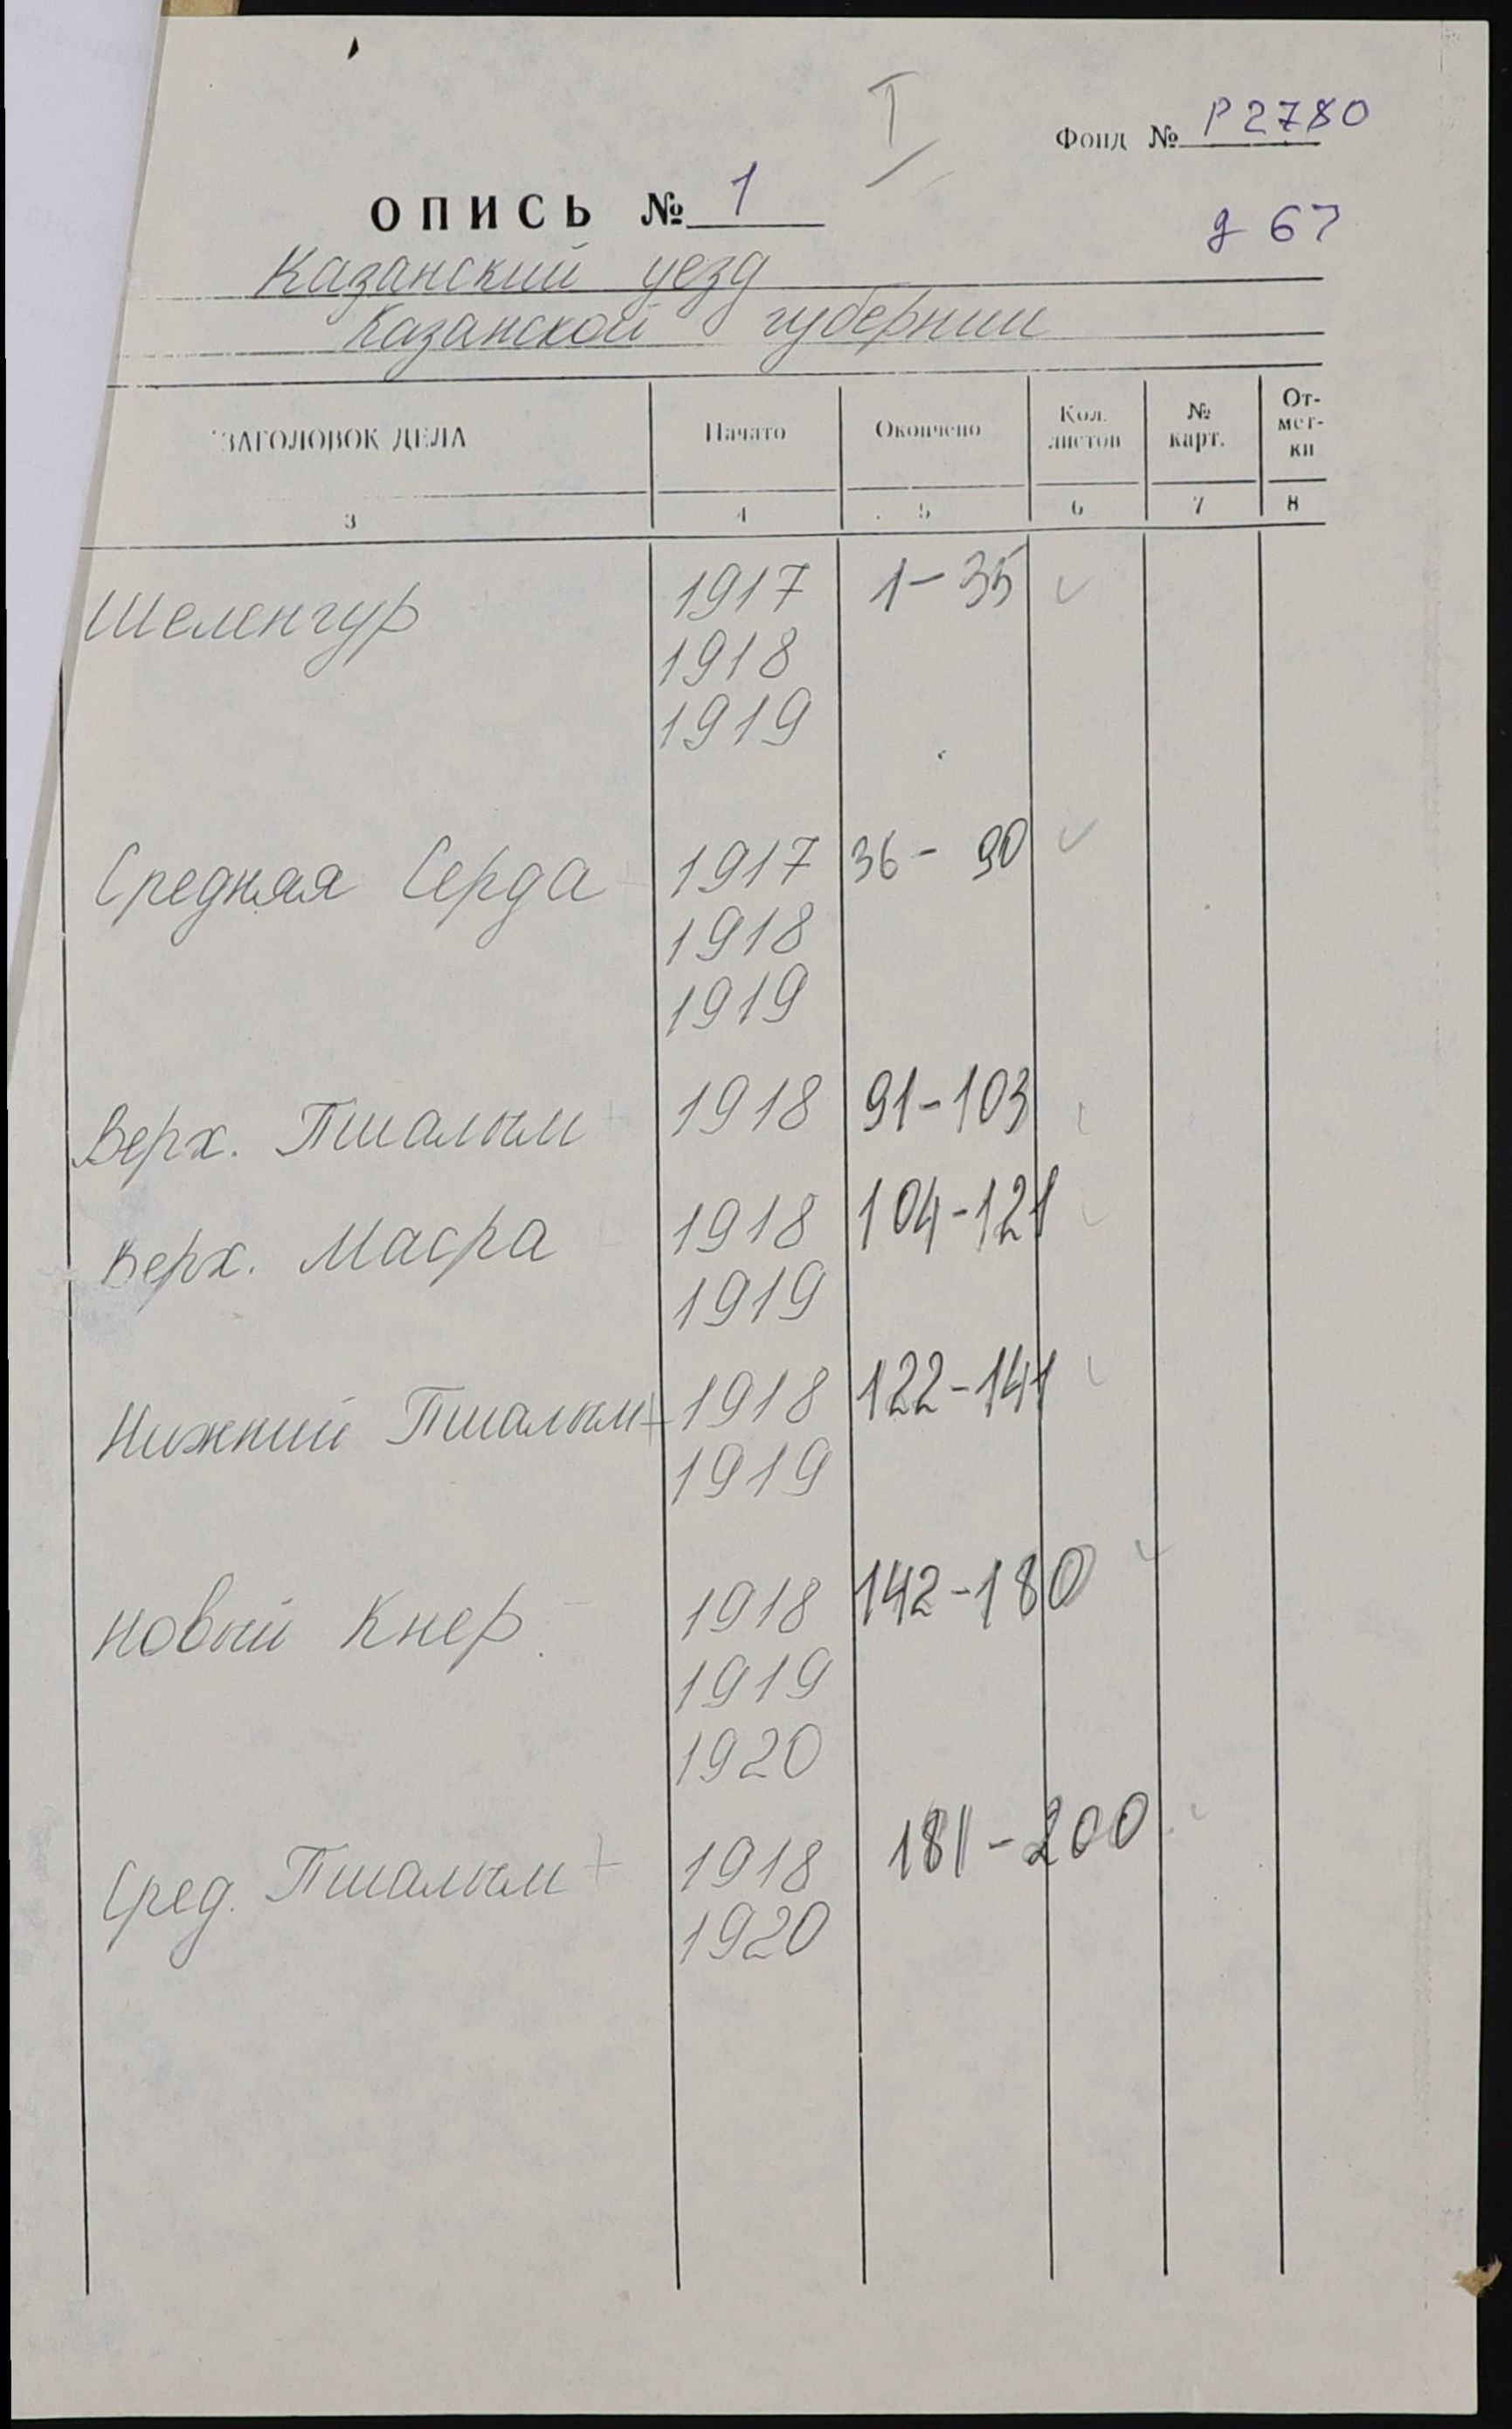 I
Фонд № Р2780
ОПИСЬ № 1
д 67
Казанский уезд
Казанской губернии
ЗАГОЛОВОК ДЕЛА Начато Окончено Кол. листов № карт. От-мет-ки
3 4 5 6 7 8
Шеленгур 1917 1-35 ✓
1918
1919
Средняя Серда 1917 36- 90 ✓
1918
1919
Верх. Пшалым 1918 91-103
Верх. Масра 1918 104-121 ✓
1919
Нижний Пшалым + 1918 122-141 ✓
1919
Новый Кнер. 1918 142-180 ✓
1919
1920
Сред. Пшалым + 1918 181-200 ✓
1920